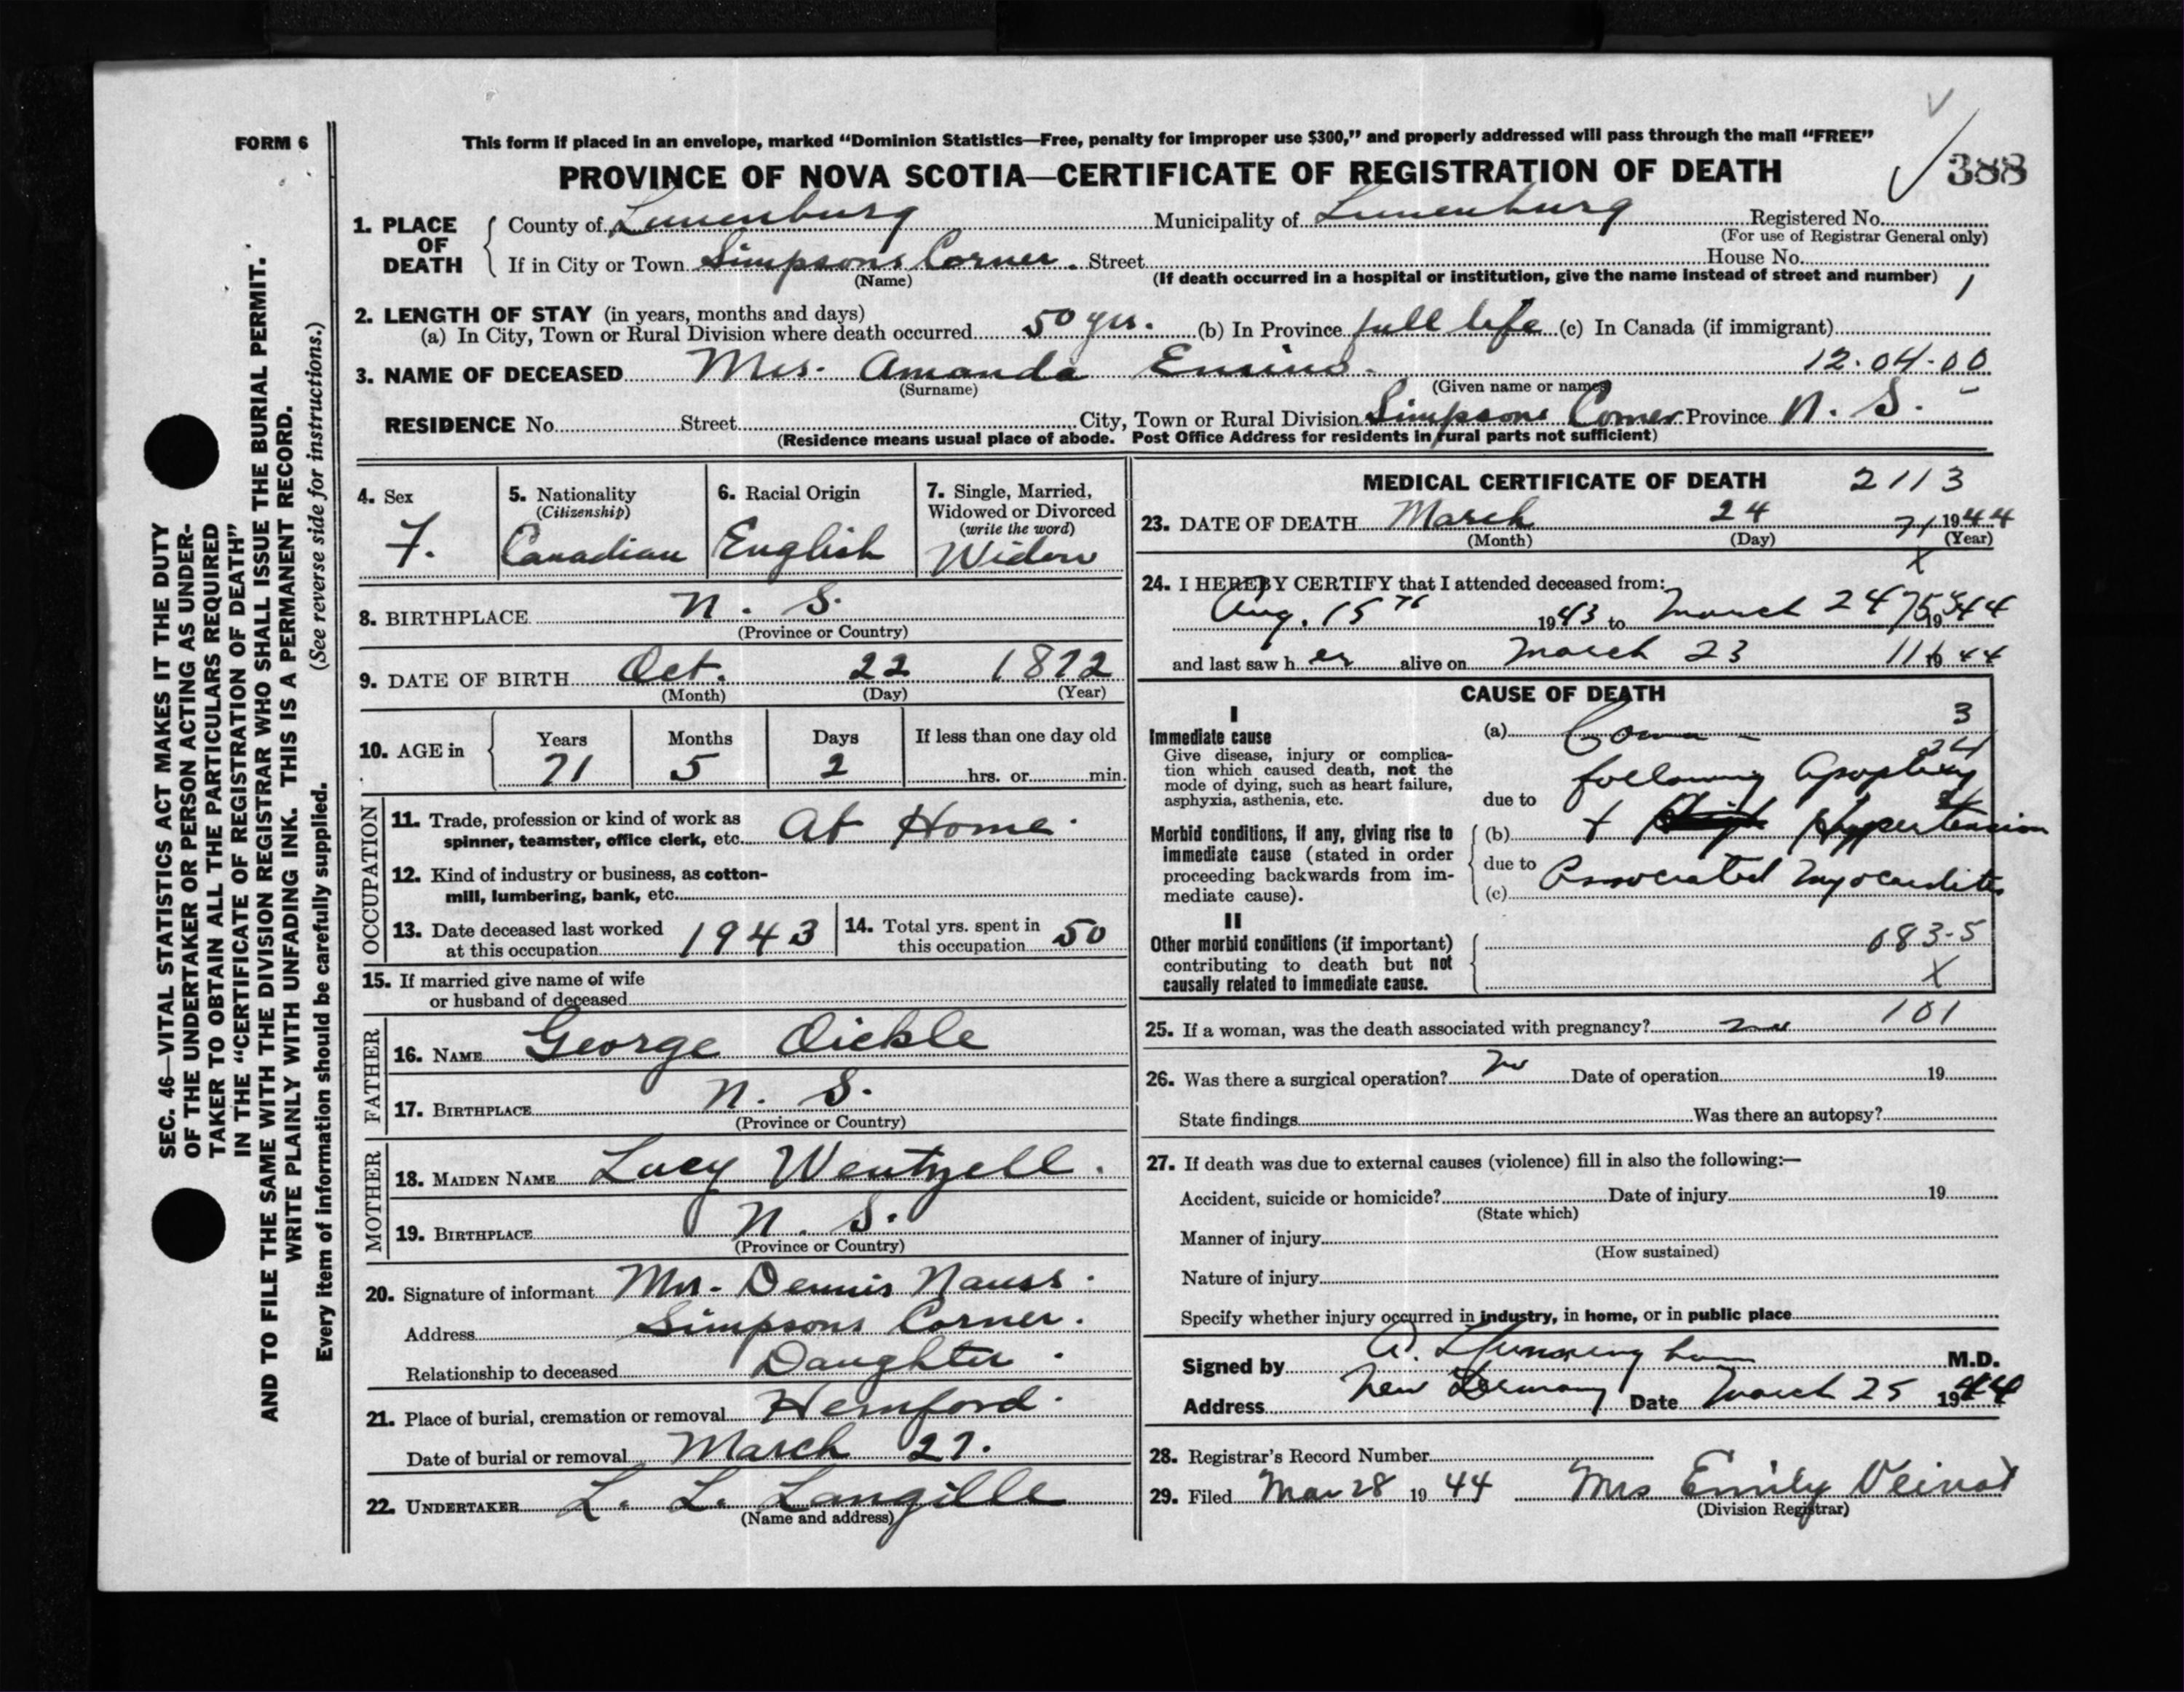 FORM 6
This form if placed in an envelope, marked “Dominion Statistics—Free, penalty for improper use $300,” and properly addressed will pass through the mail “FREE”
PROVINCE OF NOVA SCOTIA—CERTIFICATE OF REGISTRATION OF DEATH
388
1. PLACE OF DEATH
County of Lunenburg Municipality of Lunenburg Registered No.
(For use of Registrar General only)
If in City or Town Simpsons Corner. Street House No.
(Name) (If death occurred in a hospital or institution, give the name instead of street and number) 1
2. LENGTH OF STAY (in years, months and days)
(a) In City, Town or Rural Division where death occurred 50 yrs. (b) In Province full life (c) In Canada (if immigrant)
3. NAME OF DECEASED Mrs. Amanda 12.04.00
(Surname) (Given name or names)
RESIDENCE No. Street City, Town or Rural Division Simpsons Corner Province N. S.
(Residence means usual place of abode. Post Office Address for residents in rural parts not sufficient)
4. Sex
F.
5. Nationality
(Citizenship)
Canadian
6. Racial Origin
English
7. Single, Married,
Widowed or Divorced
(write the word)
Widow
8. BIRTHPLACE N. S.
(Province or Country)
9. DATE OF BIRTH Oct. 22 1872
(Month) (Day) (Year)
10. AGE in
Years Months Days If less than one day old
71 5 2 hrs. or min.
OCCUPATION
11. Trade, profession or kind of work as
spinner, teamster, office clerk, etc. At Home.
12. Kind of industry or business, as cotton-
mill, lumbering, bank, etc.
13. Date deceased last worked
at this occupation 1943
14. Total yrs. spent in
this occupation 50
15. If married give name of wife
or husband of deceased
FATHER
16. NAME George Oickle
17. BIRTHPLACE N. S.
(Province or Country)
MOTHER
18. MAIDEN NAME Lucy Wentzell.
19. BIRTHPLACE N. S.
(Province or Country)
20. Signature of informant Mrs. Dennis Nauss.
Address Simpsons Corner.
Relationship to deceased Daughter.
21. Place of burial, cremation or removal Hemford.
Date of burial or removal March 27.
22. UNDERTAKER L. L. Langille
(Name and address)
MEDICAL CERTIFICATE OF DEATH 2113
23. DATE OF DEATH March 24 71 1944
(Month) (Day) (Year)
X
24. I HEREBY CERTIFY that I attended deceased from:
Aug. 15th 1943 to March 24 1944
and last saw her alive on March 23 1944
CAUSE OF DEATH
I
Immediate cause
Give disease, injury or complica-
tion which caused death, not the
mode of dying, such as heart failure,
asphyxia, asthenia, etc.
(a) Coma - 3
following Apoplexy
due to
Morbid conditions, if any, giving rise to
immediate cause (stated in order
proceeding backwards from im-
mediate cause).
(b) + Hypertension
due to
(c) Associated Myocarditis
II
Other morbid conditions (if important)
contributing to death but not
causally related to immediate cause.
083-5
X
25. If a woman, was the death associated with pregnancy? no 101
26. Was there a surgical operation? No Date of operation 19
State findings Was there an autopsy?
27. If death was due to external causes (violence) fill in also the following:—
Accident, suicide or homicide? Date of injury 19
(State which)
Manner of injury
(How sustained)
Nature of injury
Specify whether injury occurred in industry, in home, or in public place
Signed by M.D.
Address New Germany Date March 25 1944
28. Registrar's Record Number
29. Filed Mar 28 1944 Mrs Emily Veinot
(Division Registrar)
SEC. 46—VITAL STATISTICS ACT MAKES IT THE DUTY
OF THE UNDERTAKER OR PERSON ACTING AS UNDER-
TAKER TO OBTAIN ALL THE PARTICULARS REQUIRED
IN THE “CERTIFICATE OF REGISTRATION OF DEATH”
AND TO FILE THE SAME WITH THE DIVISION REGISTRAR WHO SHALL ISSUE THE BURIAL PERMIT.
WRITE PLAINLY WITH UNFADING INK. THIS IS A PERMANENT RECORD.
Every item of information should be carefully supplied. (See reverse side for instructions.)